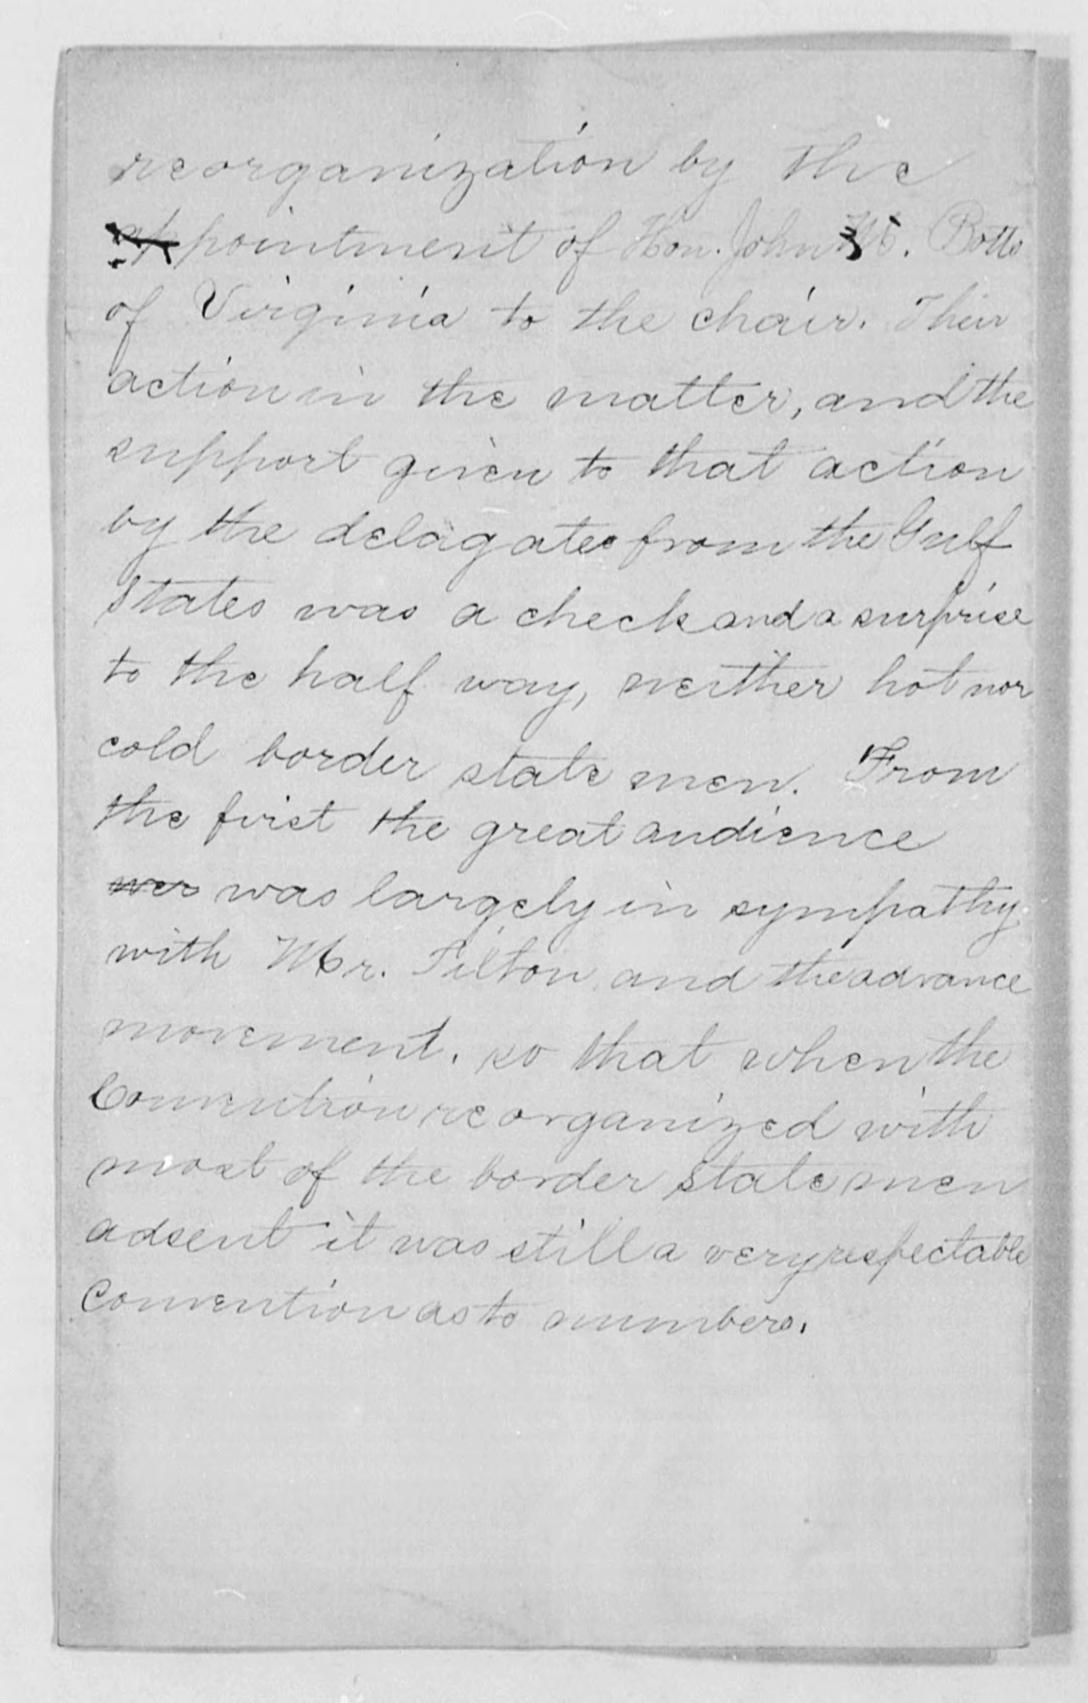 reorganization by the
appointment of Hon. John M. Botts
of Virginia to the chair. Their
action in the matter, and the
support given to that action
by the delagates from the Gulf
States was a check and a surprise
to the half way, neither hot nor
cold border state men. From
the first the great audience
wer was largely in sympathy
with Mr. Tilton and the advance
movement. so that when the
Convention reorganized with
most of the border state men
adsent it was still a very respectable
Convention as to numbers.